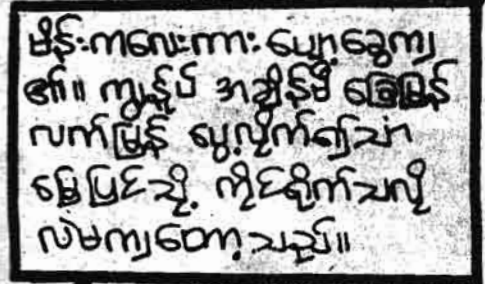 မိန်းကလေးကား ပျော့ခွေကျ
၏။ ကျွန်ုပ် အချိန်မီ ခြေမြန်
လက်မြန် ပွေ့လိုက်၍သာ
မြေပြင်သို့ ကိုင်ရိုက်သလို
လဲမကျတော့သည်။